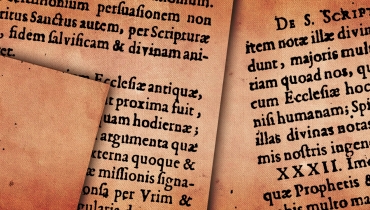 persuasionem non
ritus Sanctus autem, per Scripturæ
, fidem salvificam & divinam ani-
Ecclesiæ antiquæ,
t proxima fuit,
quam hodiernæ;
argumenta quæ
erna quoque &
æ missionis signa-
onsa per Vrim &
DE S. SCRIPT
item notæ illæ divin
dunt, majoris mult
tiam quoad nos, qu
cum Ecclesiæ hoc
nisi humanam; Spi
illas divinas notas
mis nostris ingen
XXXII.
quæ Prophetis &
multo ma